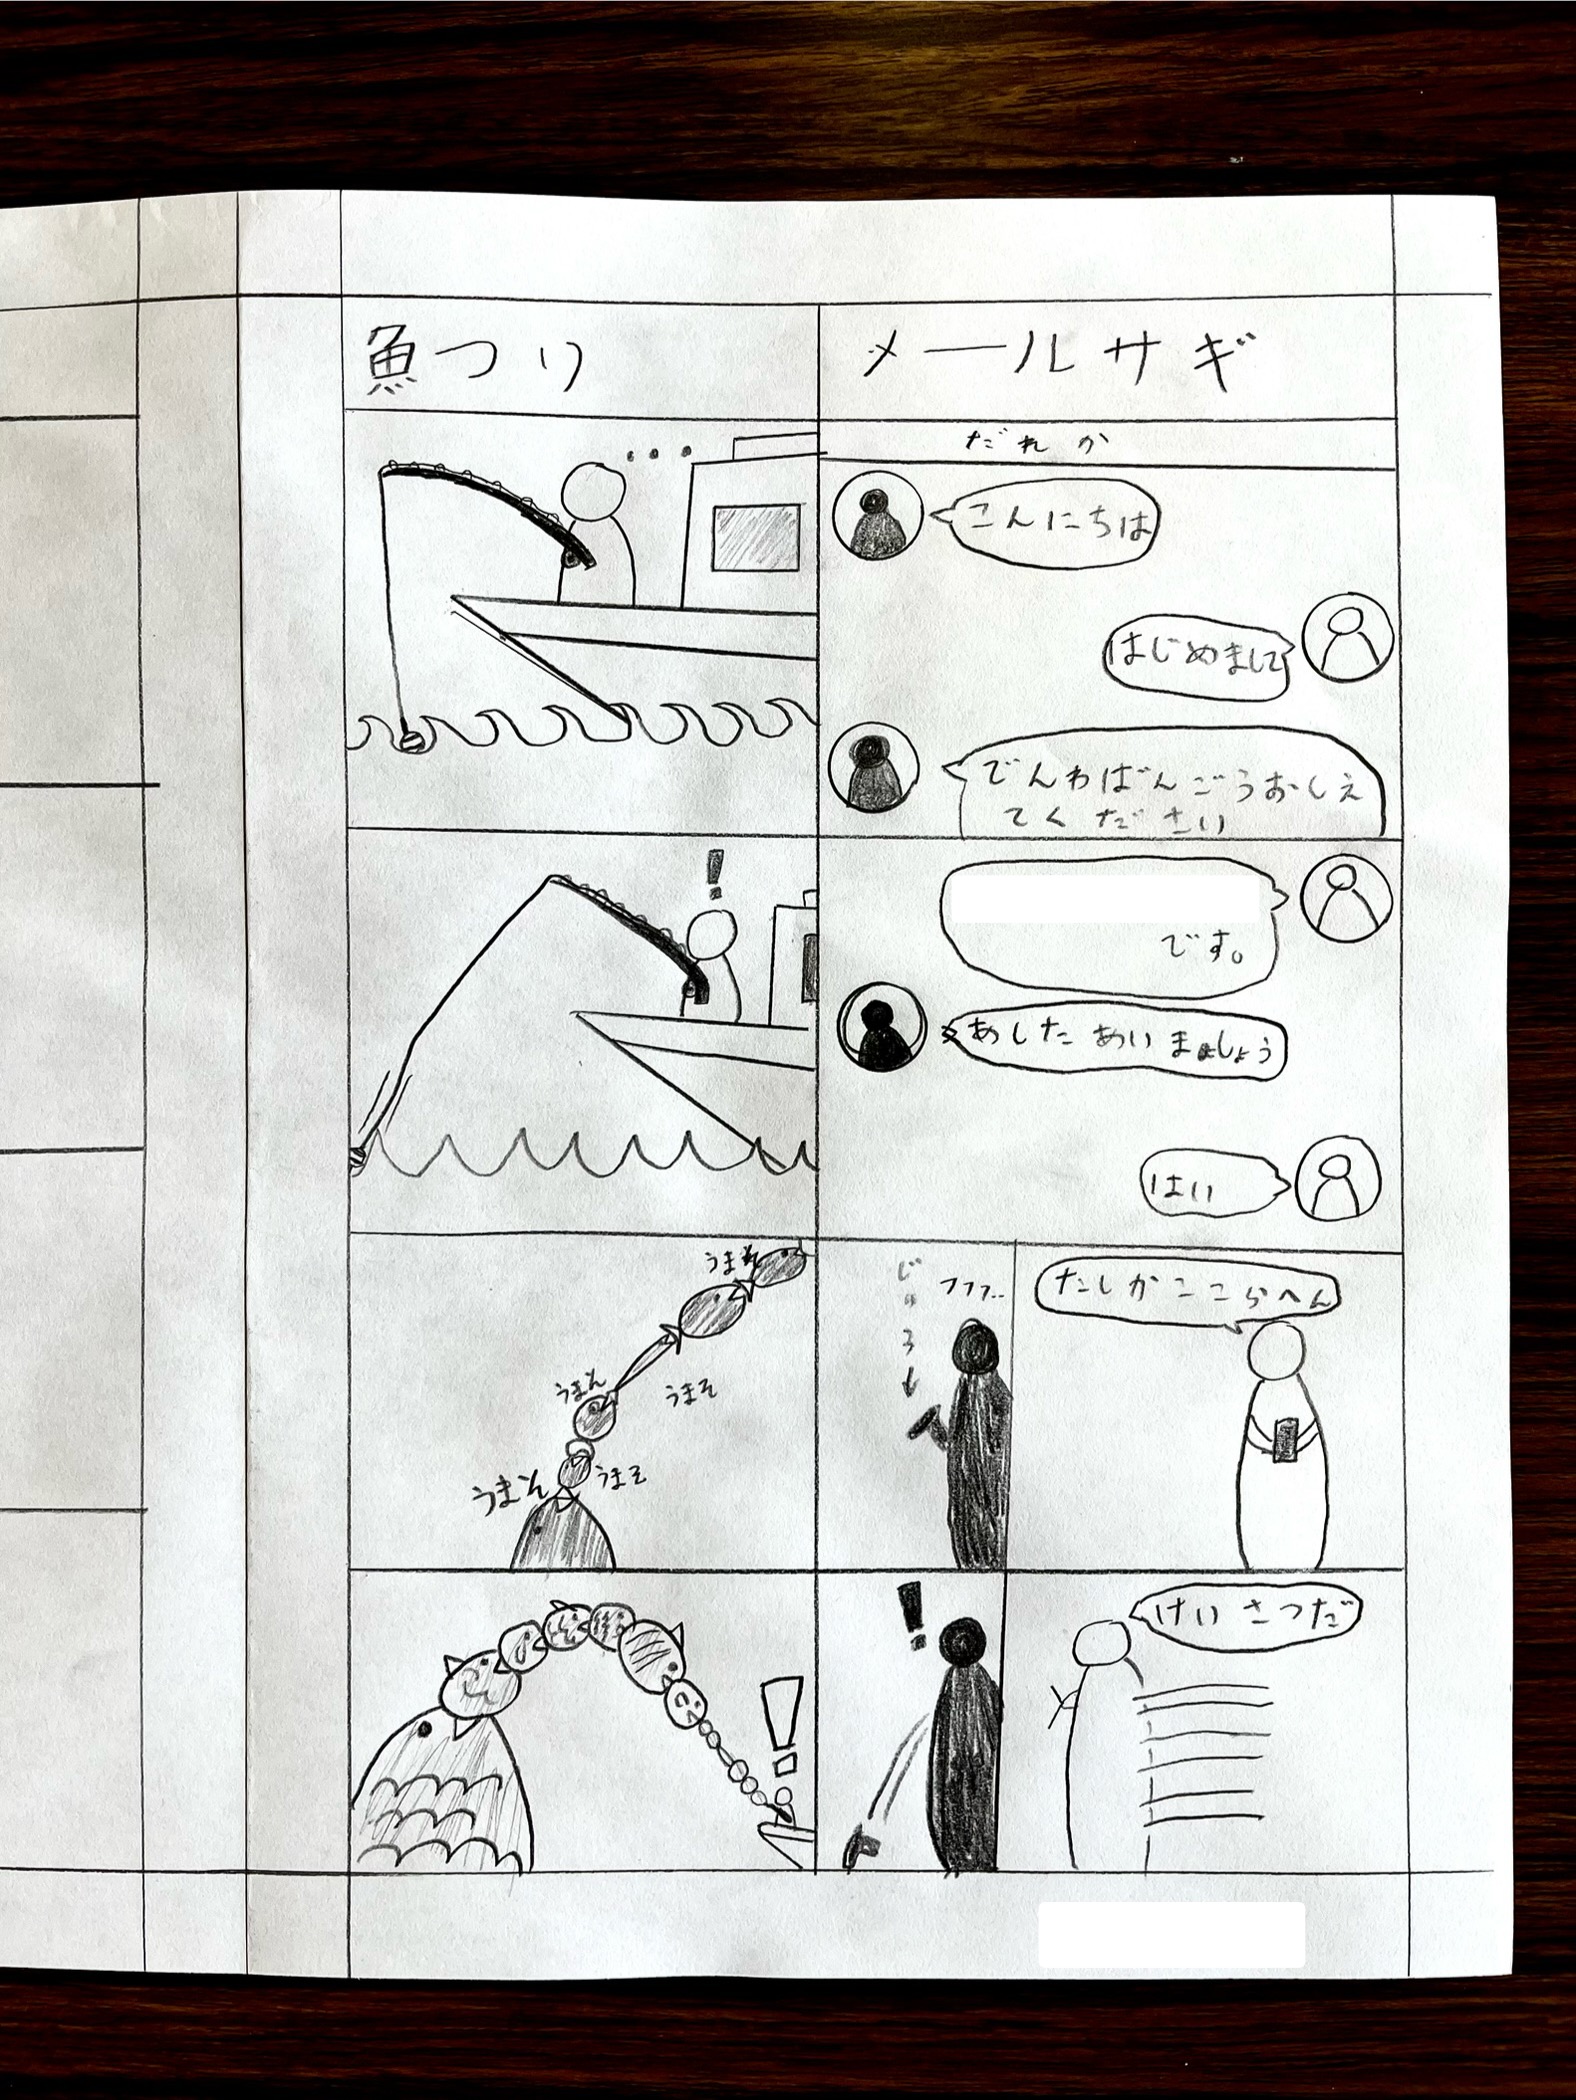 メールサギ
だれか
こんにちは
はじめまして
でんわばんごうおしえ
てください
です。
あしたあいましょう
はい
たしかここらへん
フフフ..
じゅう
けいさつだ
!
魚つり
...
!
うまそ
うまそ
うまそ
うまそ
うまそ
!